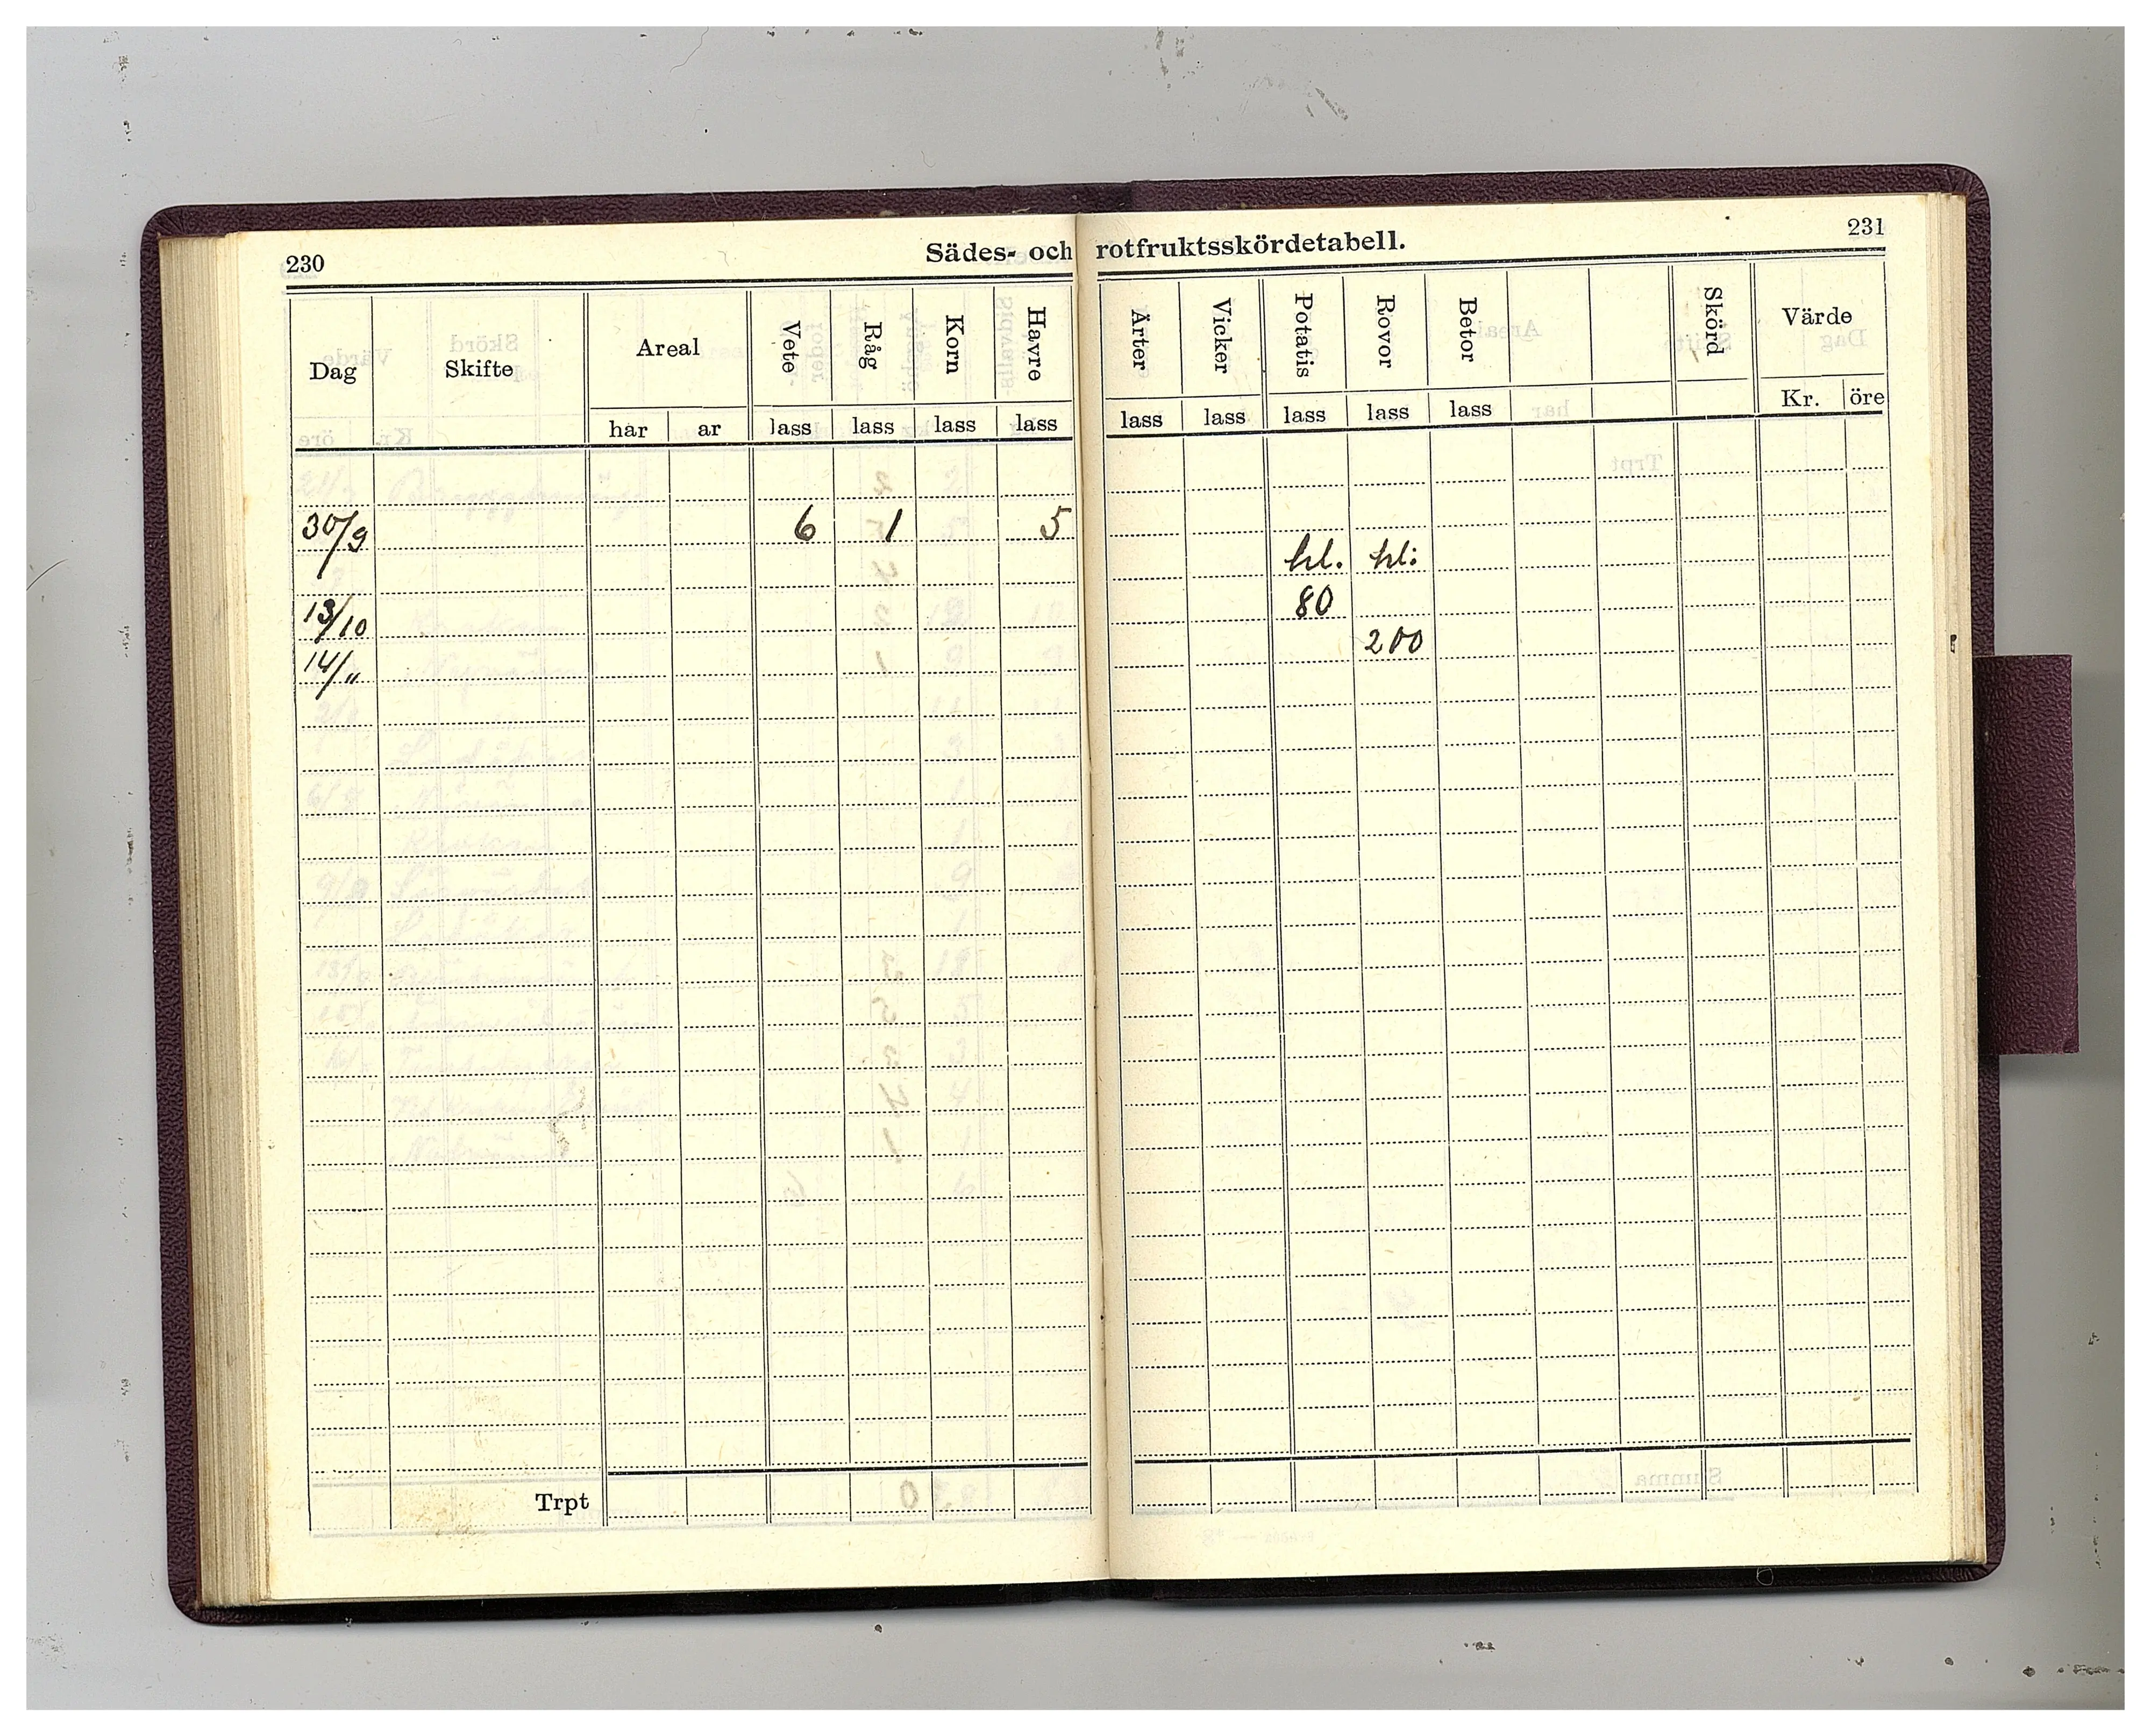 230
Sädes- och rotfruktsskördetabell.
231
Dag Skifte Areal Vete Råg Korn Havre Ärter Vicker Potatis Rovor Betor Skörd Värde
har ar lass lass lass lass lass lass lass lass lass Kr. öre
30/9 6 1 5
hl. hl:
13/10 80
14/" 200
Trpt